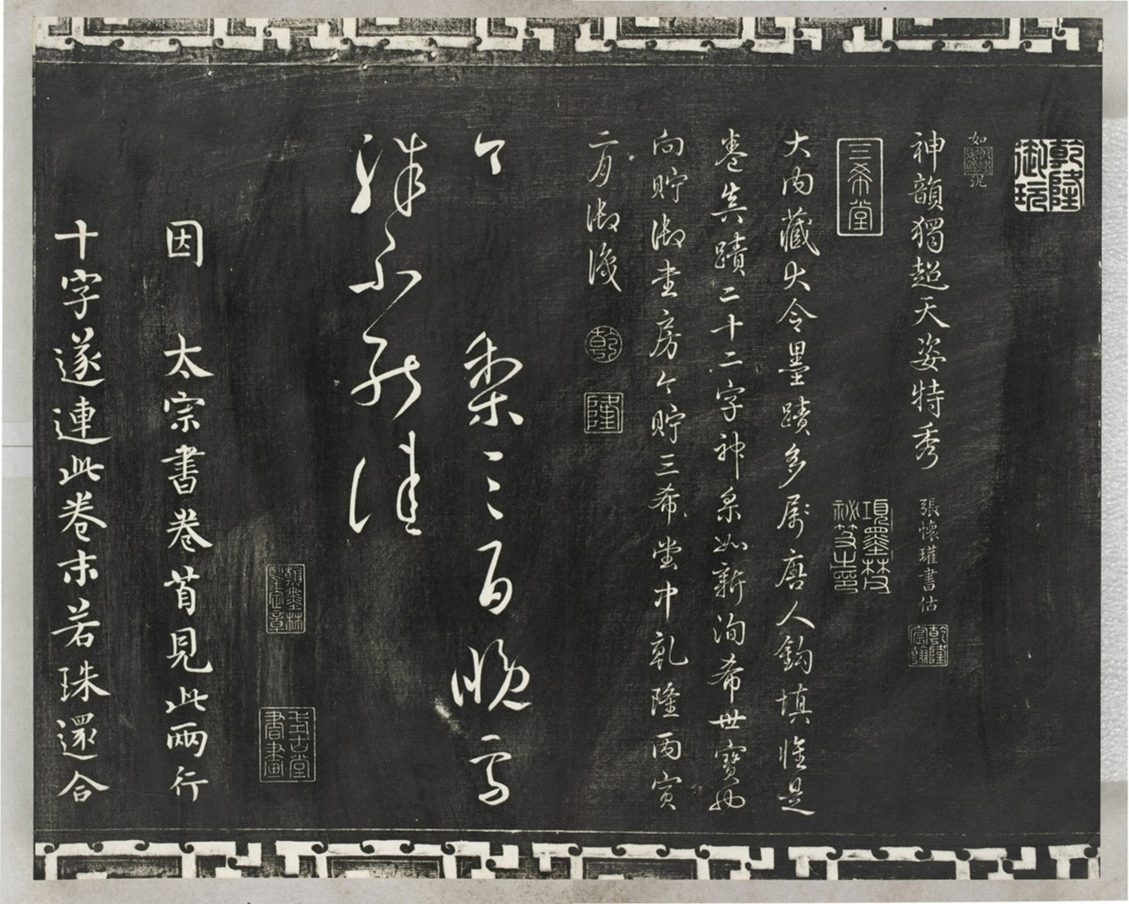 乾隆御玩
神韻獨超天姿特秀 張懷瓘書估
乾隆宸翰
三希堂
項墨林父祕笈之印
大內藏大令墨蹟多屬唐人鈎填惟是
卷真蹟二十二字神采如新洵希世寶也
向貯御書房今貯三希堂中乾隆丙寅
二月御識 乾 隆
今 梨三百晚雪
殊不能佳
因 太宗書卷首見此兩行
十字遂連此卷末若珠還合